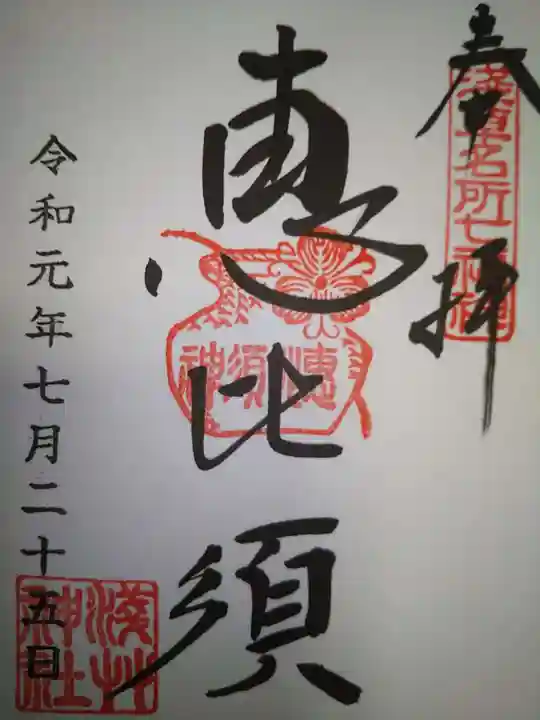 奉拝
浅草名所七福神
恵比須
恵比須神
令和元年七月二十五日
浅草神社